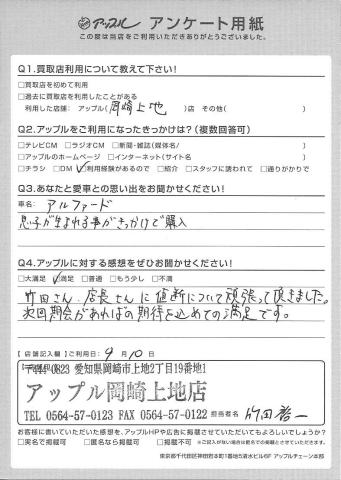 アップル アンケート用紙
この度は当店をご利用いただきありがとうございました。
Q1.買取店利用について教えて下さい!
□買取を初めて利用
□過去に買取を利用したことがある
利用した店舗: アップル(岡崎上地)店 その他( )
Q2.アップルをご利用になったきっかけは?(複数回答可)
□テレビCM □ラジオCM □新聞・雑誌(媒体名/ )
□アップルのホームページ □インターネット(サイト名 )
□チラシ □DM ☑利用経験があるので □紹介 □スタッフに誘われて □通りがかりで
Q3.あなたと愛車との思い出をお聞かせください!
車名: アルファード
息子が生まれる事がきっかけで購入
Q4.アップルに対する感想をぜひお聞かせください!
□大満足 ☑満足 □普通 □もう少し □不満
竹田さん、店長さんに値断について頑張って頂きました。
次回期会があればの期待を込めての満足です。
【店舗記入欄】ご利用日: 9月10日
〒444-0823 愛知県岡崎市上地2丁目19番地1
アップル岡崎上地店
TEL 0564-57-0123 FAX 0564-57-0122 担当者名
お客様に書いていただきました感想を、アップルHPや広告に掲載させていただいてもよろしいでしょうか?
□実名で掲載可 □匿名なら掲載可 □掲載不可 ※ご記入が無い場合は匿名での掲載とさせていただきます。
東京都千代田区神田府本町1番地5清水ビル6F アップルチェーン本部